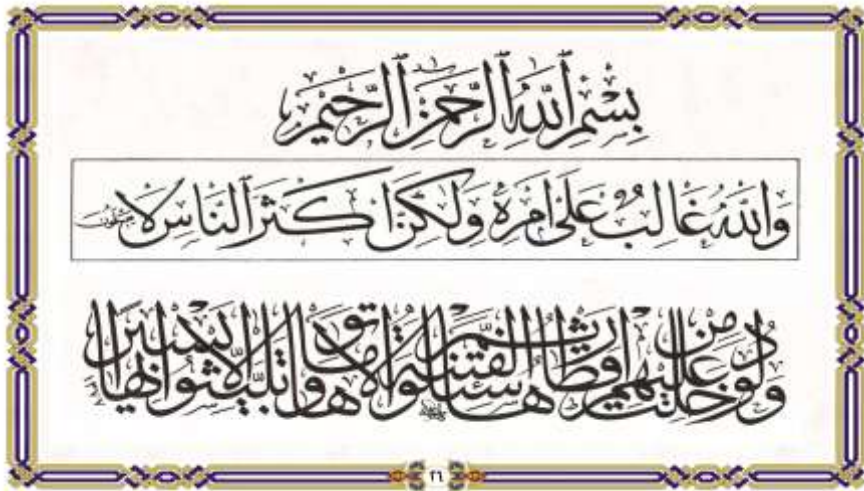 بِسْمِ ٱللَّهِ ٱلرَّحْمَٰنِ ٱلرَّحِيمِ
وَاللَّهُ غَالِبٌ عَلَىٰ أَمْرِهِ وَلَٰكِنَّ أَكْثَرَ ٱلنَّاسِ لَا يَعْلَمُونَ
وَلَوْ دُخِلَتْ عَلَيْهِم مِّنْ أَقْطَارِهَا ثُمَّ سُئِلُوا الْفِتْنَةَ لَآتَوْهَا وَمَا تَلَبَّثُوا بِهَا إِلَّا يَسِيرًا
٢٦